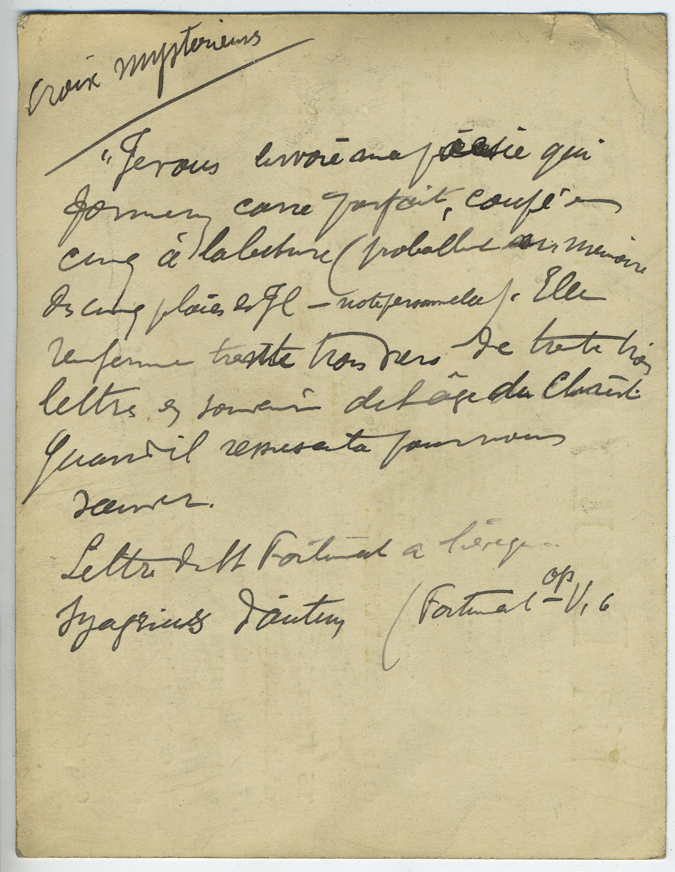 Croix mystérieuse
"Je vous envoie ma poésie qui
forme un carré parfait, coupé en
cinq à la lecture (probablement en mémoire
des cinq plaies de - note personnelle). Elle
renferme trente trois vers de trente trois
lettres en souvenir de l'âge du Christ
quand il ressuscita pour nous
sauver.
Lettre de St Fortunat a l'évêque
Syagrius d'Autun (Fortunat op V, 6